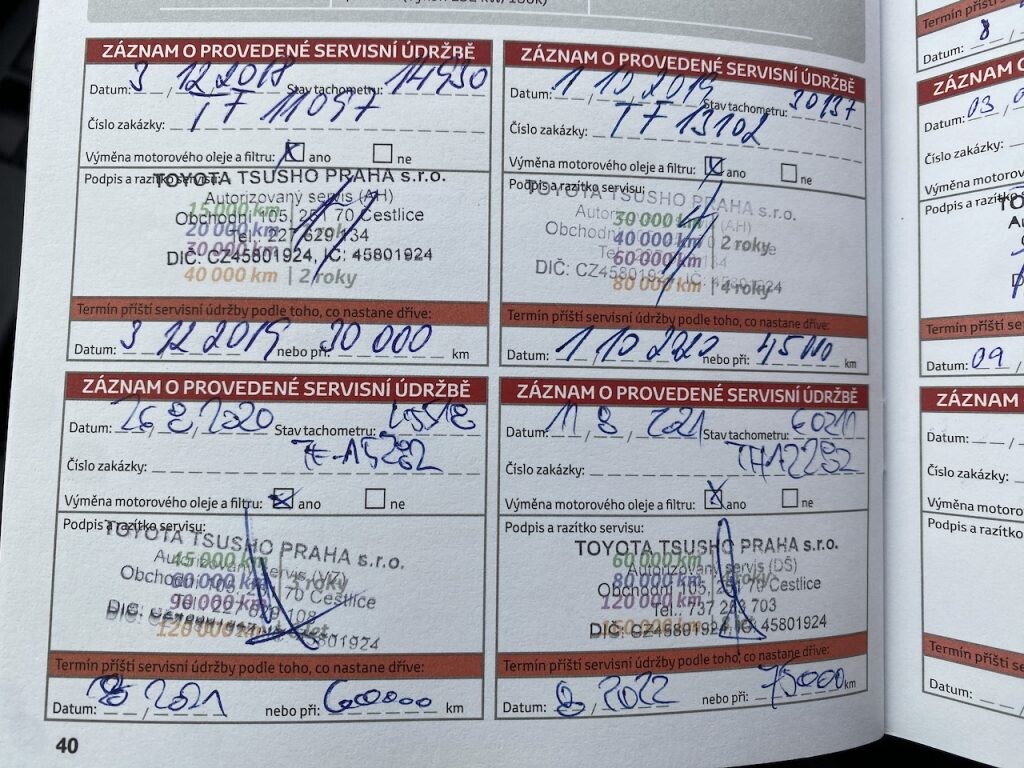 ZÁZNAM O PROVEDENÉ SERVISNÍ ÚDRŽBĚ
Datum: 3 / 12 2018 Stav tachometru: 14930
TF 11097
Číslo zakázky:
Výměna motorového oleje a filtru: ano ne
Podpis a razítko servisu:
TOYOTA TSUSHO PRAHA s.r.o.
Autorizovaný servis (AH)
15 000 km
Obchodní 105, 251 70 Čestlice
20 000 km | 1 rok
Tel.: 227 629 134
30 000 km
DIČ: CZ45801924, IČ: 45801924
40 000 km | 2 roky
Termín příští servisní údržby podle toho, co nastane dříve:
Datum: 3 12 2019 nebo při: 30 000 km
ZÁZNAM O PROVEDENÉ SERVISNÍ ÚDRŽBĚ
Datum: 1 10 2019 Stav tachometru: 30137
TF 13102
Číslo zakázky:
Výměna motorového oleje a filtru: ano ne
Podpis a razítko servisu:
TOYOTA TSUSHO PRAHA s.r.o.
(AH)
30 000 km
Obchodní
40 000 km | 2 roky
60 000 km
DIČ: CZ45801924 IČ: 45801924
80 000 km | 4 roky
Termín příští servisní údržby podle toho, co nastane dříve:
Datum: 1 10 nebo při: km
ZÁZNAM O PROVEDENÉ SERVISNÍ ÚDRŽBĚ
Datum: 26 / 8 / 2020 Stav tachometru:
Číslo zakázky:
Výměna motorového oleje a filtru: ano ne
Podpis a razítko servisu:
TOYOTA TSUSHO PRAHA s.r.o.
Autorizovaný servis (VZ)
45 000 km
Obchodní 105, 251 70 Čestlice
60 000 km | 3 roky
90 000 km
120 000 km
Termín příští servisní údržby podle toho, co nastane dříve:
Datum: 8 / 2021 nebo při: 60000 km
ZÁZNAM O PROVEDENÉ SERVISNÍ ÚDRŽBĚ
Datum: 11 / 8 / 2021 Stav tachometru: 60211
TH12292
Číslo zakázky:
Výměna motorového oleje a filtru: ano ne
Podpis a razítko servisu:
TOYOTA TSUSHO PRAHA s.r.o.
60 000 km
Autorizovaný servis (DŠ)
Obchodní 105, 251 70 Čestlice
120 000 km
Tel.: 737 703
DIČ: CZ45801924, IČ: 45801924
Termín příští servisní údržby podle toho, co nastane dříve:
Datum: 8 / 2022 nebo při: 75000 km
40
Termín příští
Datum: 8
ZÁZNAM
Datum: 03
Číslo zakázky:
Výměna motorov
Podpis a razítko
Termín příští se
Datum: 09
ZÁZNAM
Datum:
Číslo zakázky:
Výměna motoro
Podpis a razítko
Termín příští se
Datum: